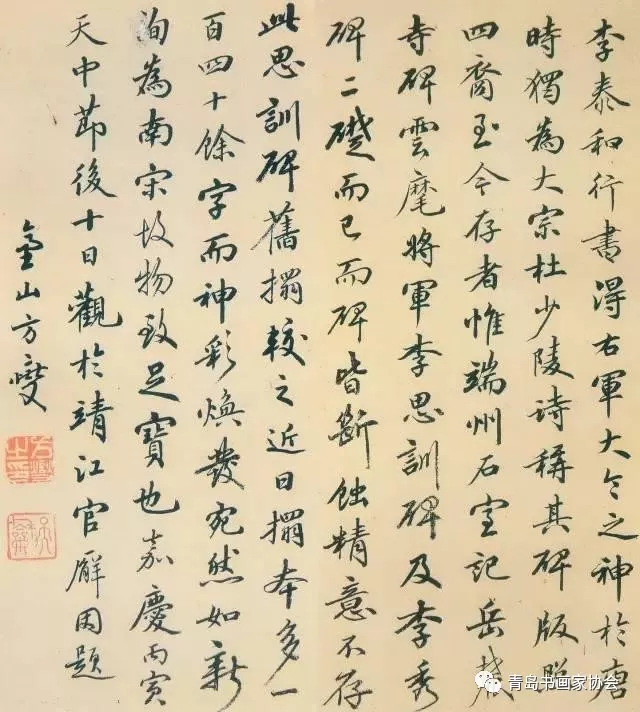 李泰和行書得右軍大令之神於唐
時獨為大宗杜少陵詩稱其碑版照
四裔至今存者惟端州石室記岳麓
寺碑雲麾將軍李思訓碑及李秀
碑二礎而已而碑皆斷蝕精意不存
此思訓碑舊搨較之近日搨本多一
百四十餘字而神彩煥發宛然如新
洵為南宋故物致足寶也嘉慶丙寅
天中節後十日觀於靖江官廨因題
寶山方燮
青岛书画家协会